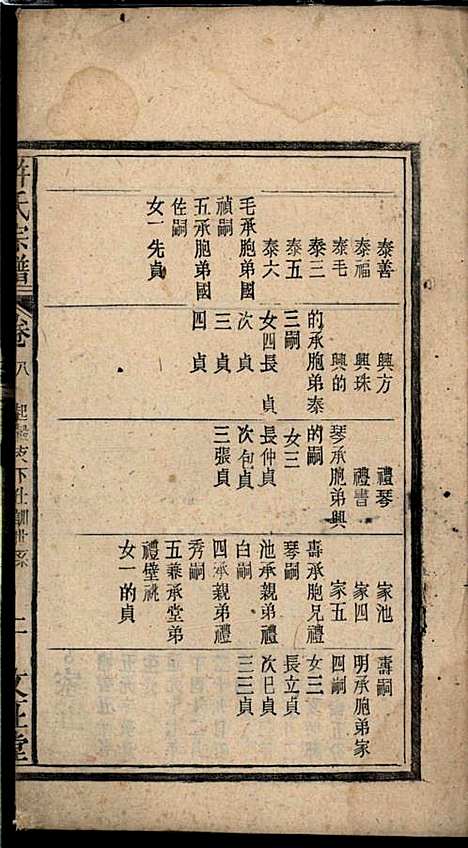 泰善
泰福
泰毛
泰三
泰五
泰六
毛承胞弟國
禎嗣
五承胞弟國
佐嗣
女一先貞
興方
興珠
興的
的承胞弟泰
三嗣
女四長貞
次貞
三貞
四貞
禮琴
禮書
琴承胞弟興
的嗣
女三
長仲貞
次包貞
三張貞
家池
家四
家五
壽承胞兄禮
琴嗣
池承親弟禮
白嗣
四承親弟禮
秀嗣
五兼承堂弟
禮壁祧
女一的貞
壽嗣
明承胞弟家
四嗣
女三
長立貞
次巳貞
三三貞
許氏宗譜
卷八
二
文正堂